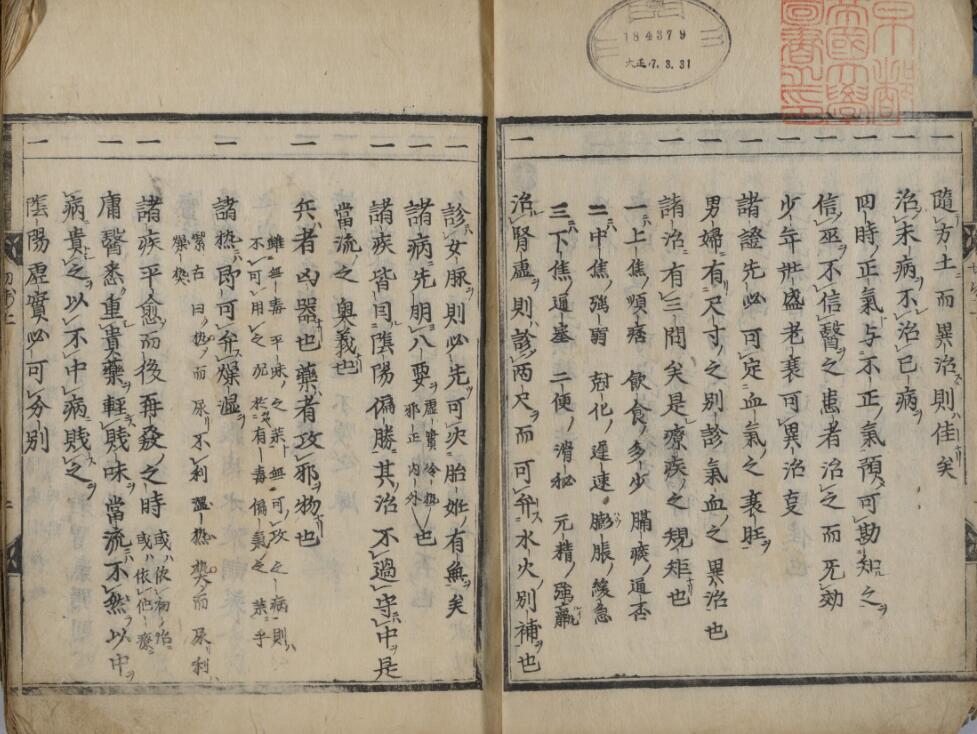 184379
大正 7.3.31
京都
帝國大學
圖書之印
一 隨方土而異治則佳矣
一 治未病不治已病
一 四時正氣与不正氣預可勘知之
一 信巫不信醫之患者治之而无効
一 少年壯盛老衰可異治叓
一 諸證先必可定血氣之衰旺
一 男婦有尺寸之別診氣血之異治也
一 諸治有三問矣是療疾之規矩也
一上焦 煩痞 飲食多少 膈痰通否
二中焦 強弱 尅化遲速 膨脹緩急
三下焦 通塞 二便滑秘 元精強羸
一 治腎虛則診两尺而可弁水火別補也
一 診女脉則必先可决胎姙有無矣
一 諸病先明八要 虛實冷热邪正内外 也
一 諸疾皆因陰陽偏勝其治不過守中是
當流之奥義也
一 兵者凶器也藥者攻邪物也
雖無毒平味之菜無可攻之病則
不可用之况於有毒偏氣之菜乎
一 諸热即可弁燥湿
紫右曰热而尿不利湿热热而尿利
燥热
一 諸疾平愈而後再發之時 或依初治或依他療
一 庸醫悉重貴藥輕賤味當流不然以中
病貴之以不中病賤之
一 陰陽虛實必可分別